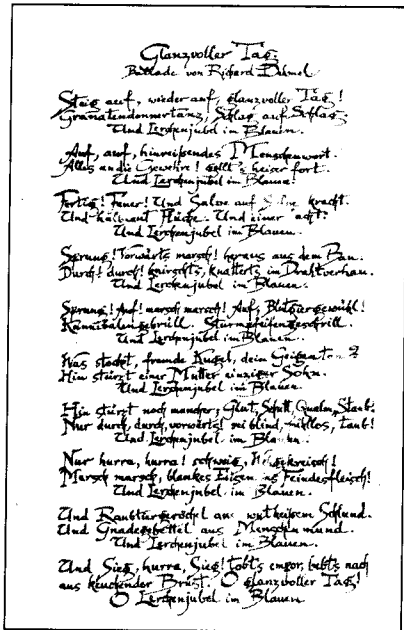 Glanzvoller Tag.
Ballade von Richard Dehmel
Steig auf, wieder auf, glanzvoller Tag!
Granatendonnertanz, Schlag auf Schlag.
Und Lerchenjubel im Blauen.
Auf, auf, hinreißendes Menschenwort.
Alles an die Gewehre! gellt's heiser fort.
Und Lerchenjubel im Blauen.
Fertig! Feuer! Und Salve auf Salve kracht.
Und Flüche. Und einer
Und Lerchenjubel im Blauen.
Sprung! Vorwärts marsch! heraus aus dem Bau.
Durch! durch! knirschts, knatterts im Drahtverhau.
Und Lerchenjubel im Blauen.
Sprung! Auf! marsch marsch! Auf, Blutgurgewühl!
Kannibalengebrüll. Sturmpfeifengeschrill.
Und Lerchenjubel im Blauen.
Was stockt, fremde Kugel, dein Geigenton?
Hin stürzt einer Mutter einziger Sohn.
Und Lerchenjubel im Blauen.
Hin stürzt noch mancher; Glut, Schutt, Qualm, Staub.
Nur durch, durch, vorwärts! blind, taub!
Und Lerchenjubel im Blauen.
Nur hurra, hurra! schweig,
Marsch marsch, blankes Eisen ins Feindesfleisch!
Und Lerchenjubel im Blauen.
Und aus Schlund.
Und Gnadegebettel aus Menschenmund.
Und Lerchenjubel im Blauen.
Und Sieg, hurra, Sieg! tobts empor, bebts nach
aus keuchender Brust. O glanzvoller Tag!
O Lerchenjubel im Blauen